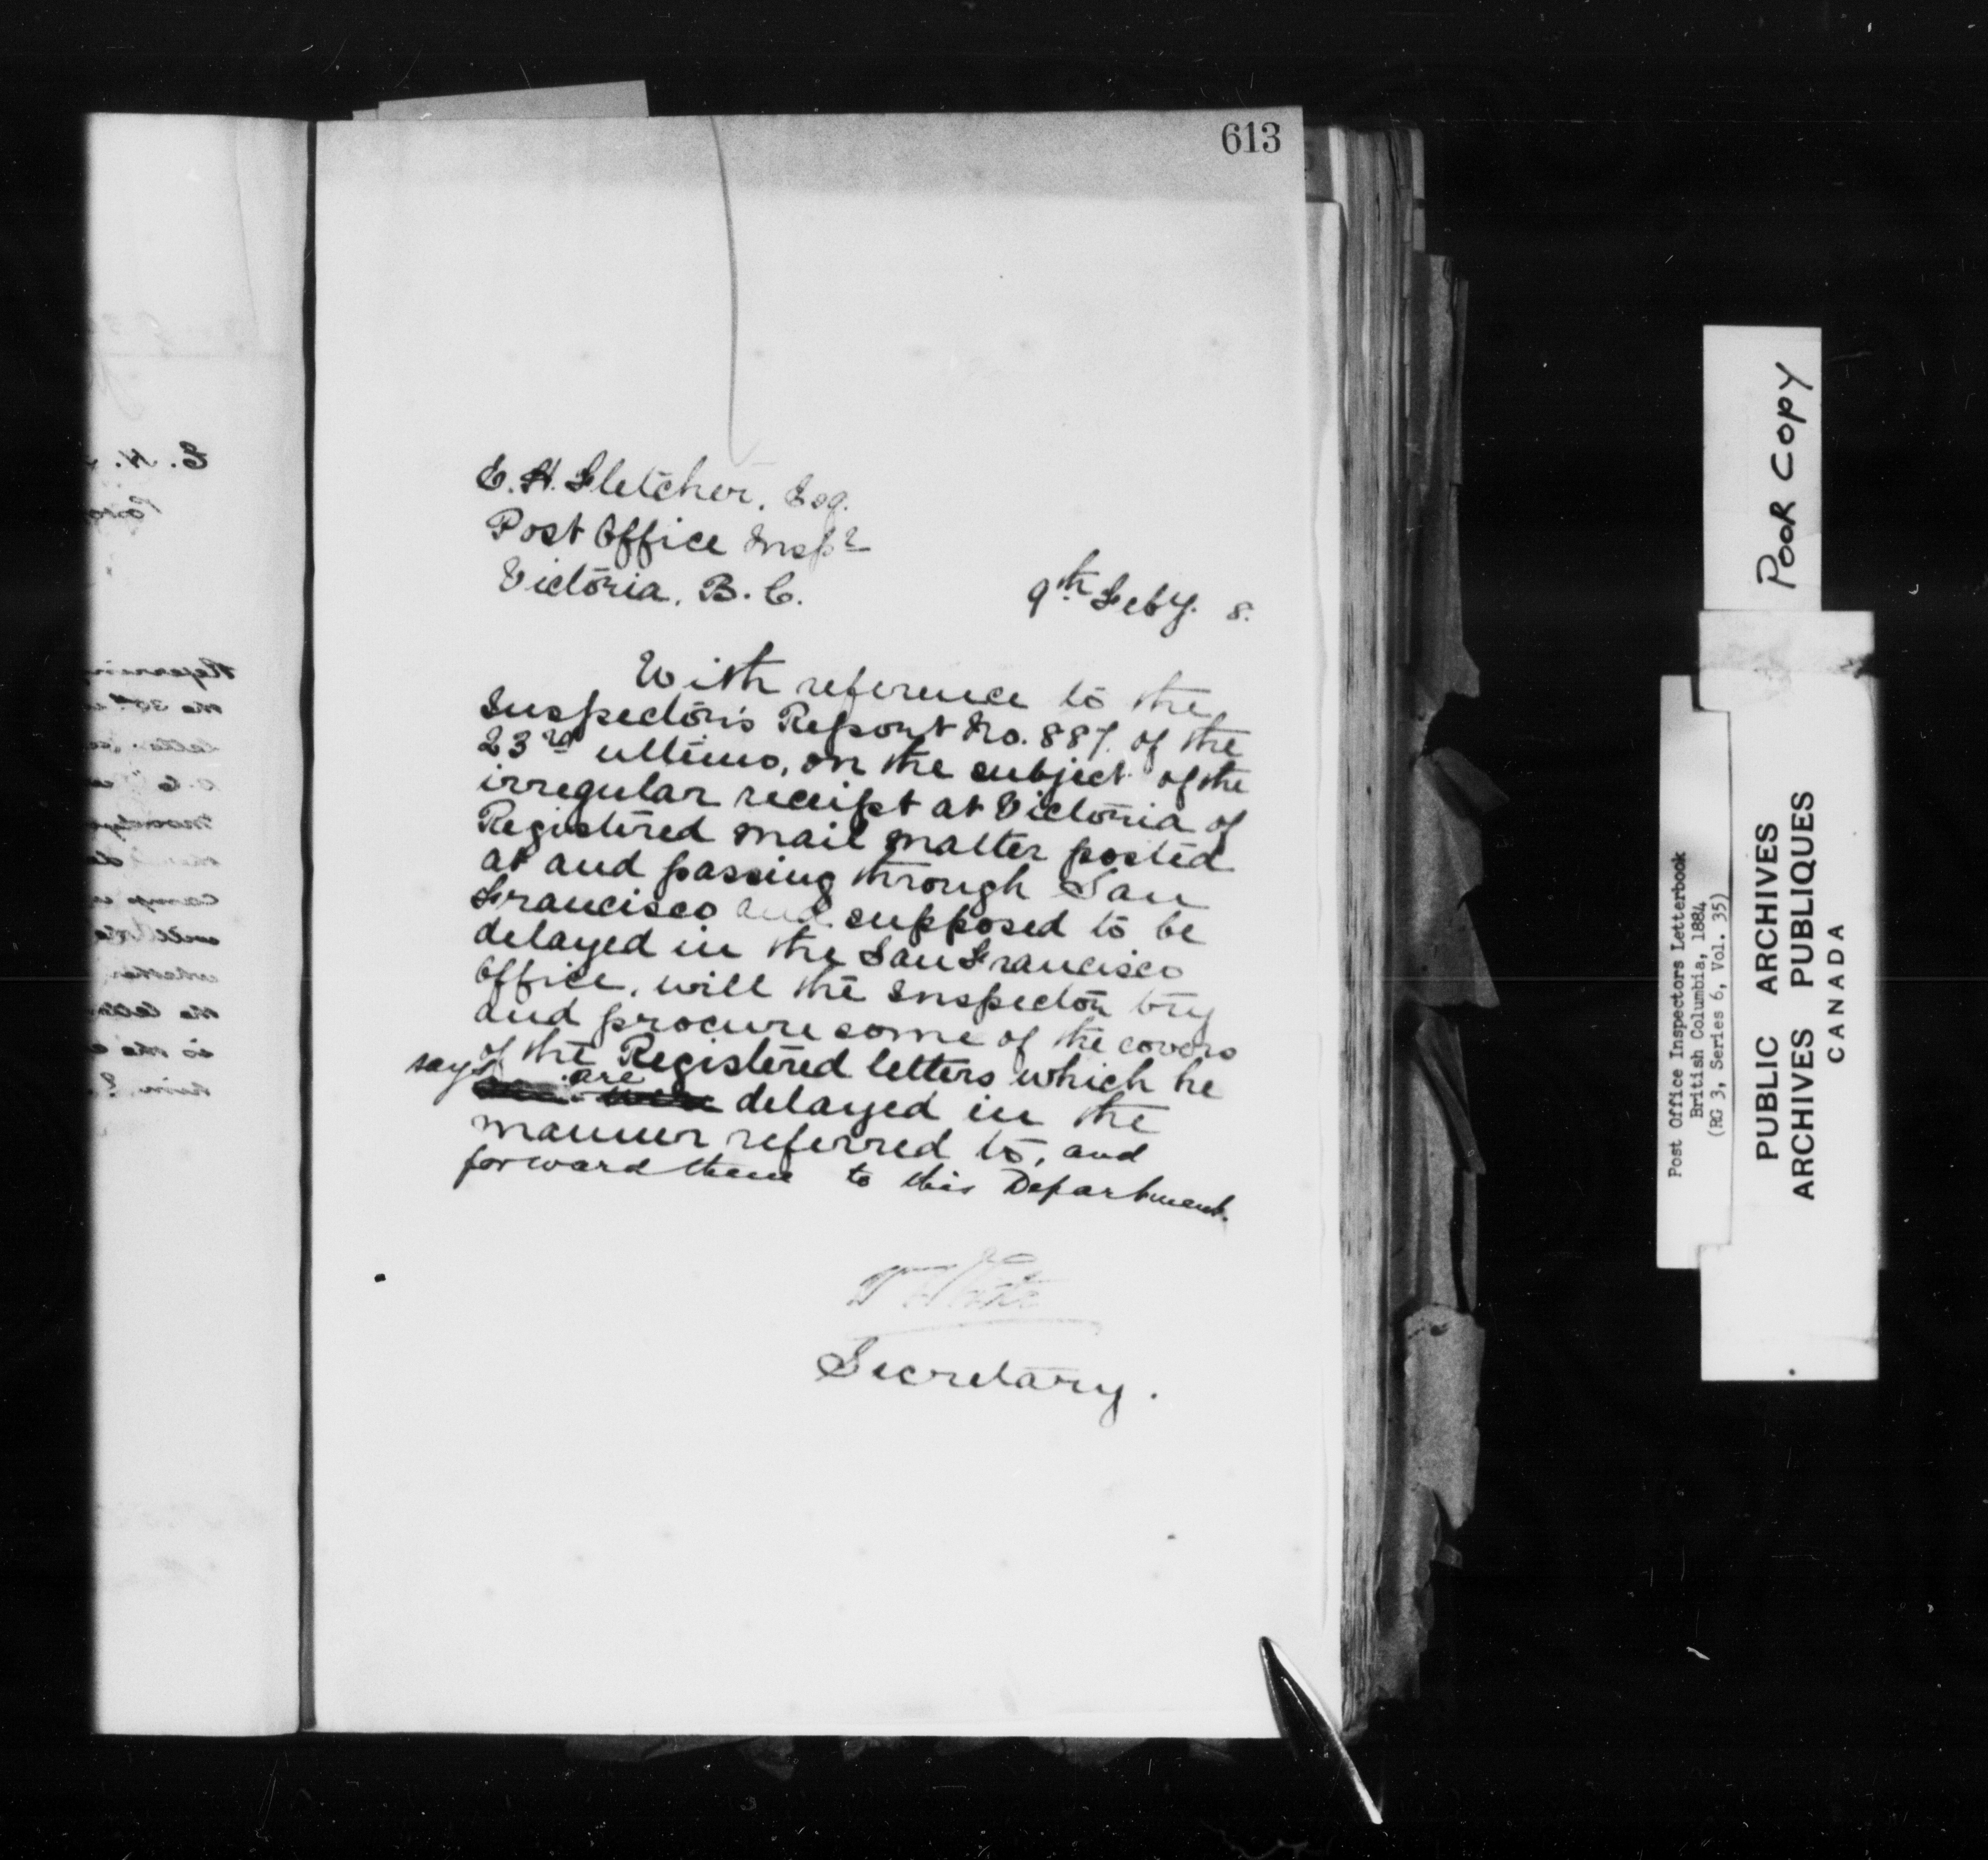 613
E. H. Fletcher, Esq.
Post Office Inspr
Victoria, B.C.
9th Feby. 8.
With reference to the
Inspector's Report No. 887. of the
23rd ultimo, on the subject of the
irregular receipt at Victoria of
Registered mail matter posted
at and passing through San
Francisco and supposed to be
delayed in the San Francisco
Office, will the Inspector try
and procure some of the covers
of the Registered letters which he
says are delayed in the
manner referred to, and
forward them to this Department.
Secretary.
E. H.
the 30th
POOR COPY
Post Office Inspectors Letterbook
British Columbia, 1884
(RG 3, Series 6, Vol. 35)
PUBLIC ARCHIVES
ARCHIVES PUBLIQUES
CANADA